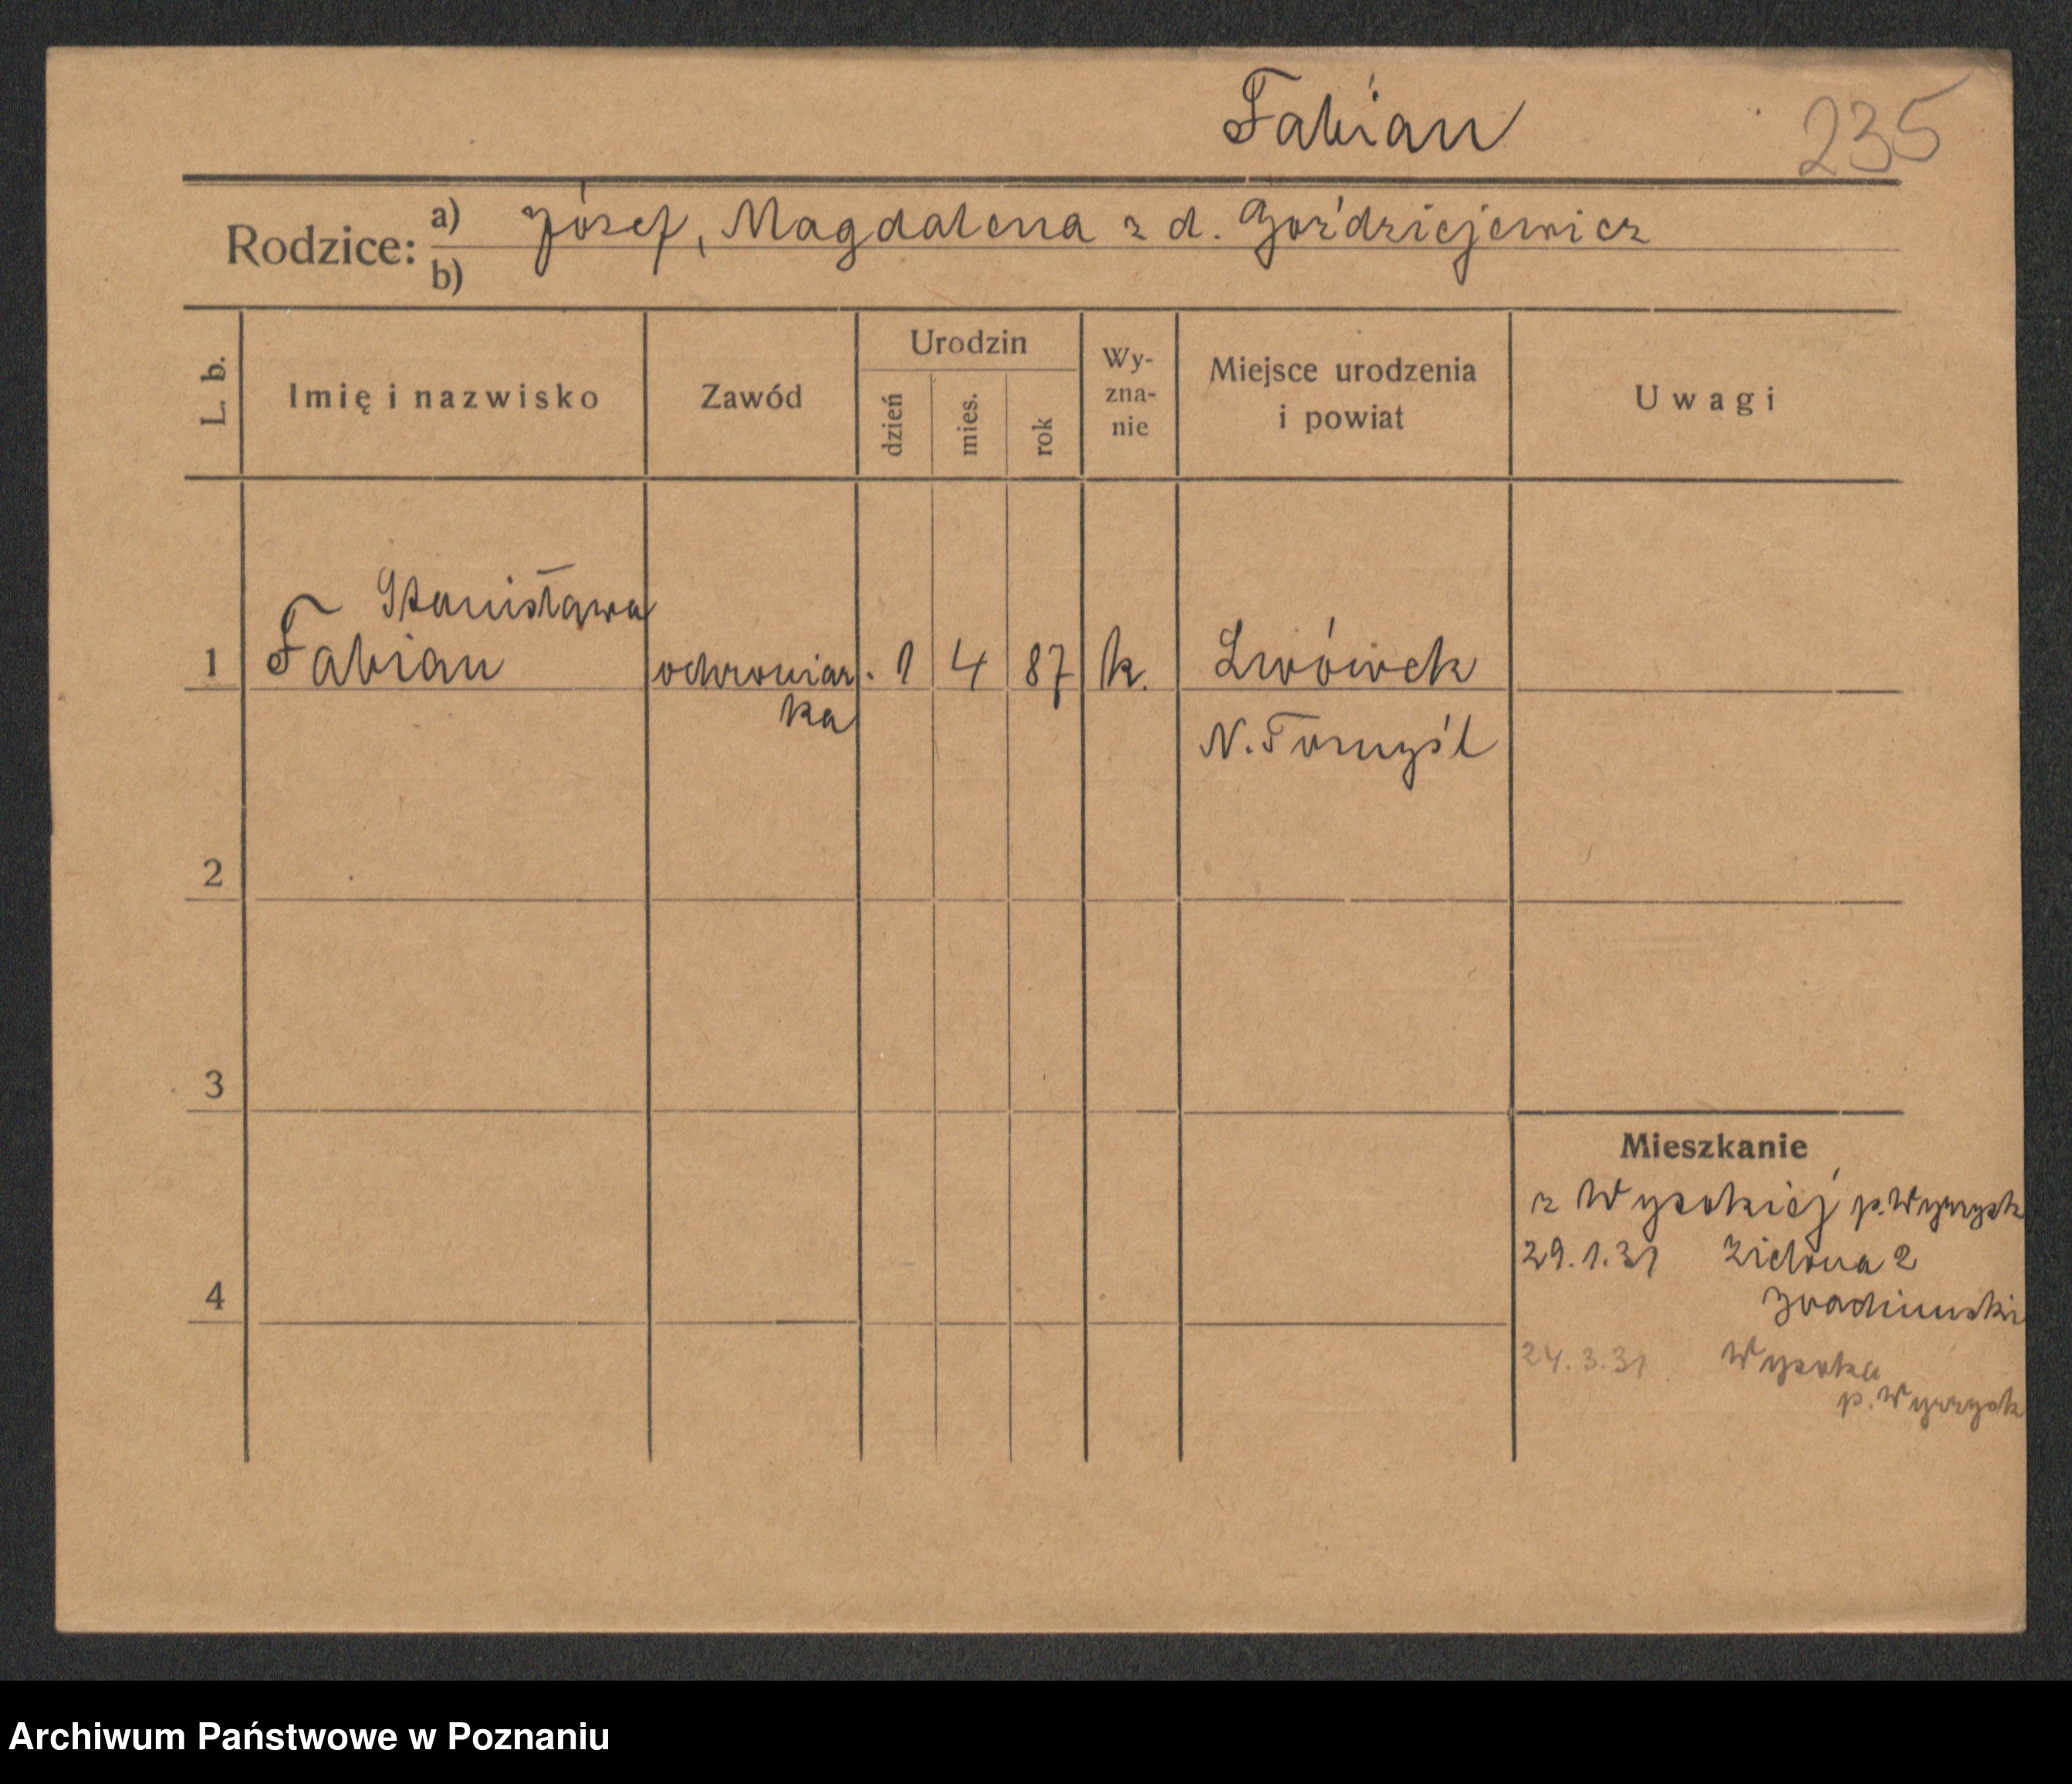 Fabian
235
Rodzice: a) Józef, Magdalena z d. Goździejewicz
b)
L. b.
Imię i nazwisko
Zawód
Urodzin
dzień
mies.
rok
Wy-
zna-
nie
Miejsce urodzenia
i powiat
Uwagi
Stanisława
1 Fabian ochroniar. 1 4 87 k. Lwówek
ka
N. Tomyśl
2
3
4
Mieszkanie
z Wysokiej p. Wyrzysk
29.1.31 Zielona 2
24.3.31 Wysoka
p. Wyrzysk
Archiwum Państwowe w Poznaniu